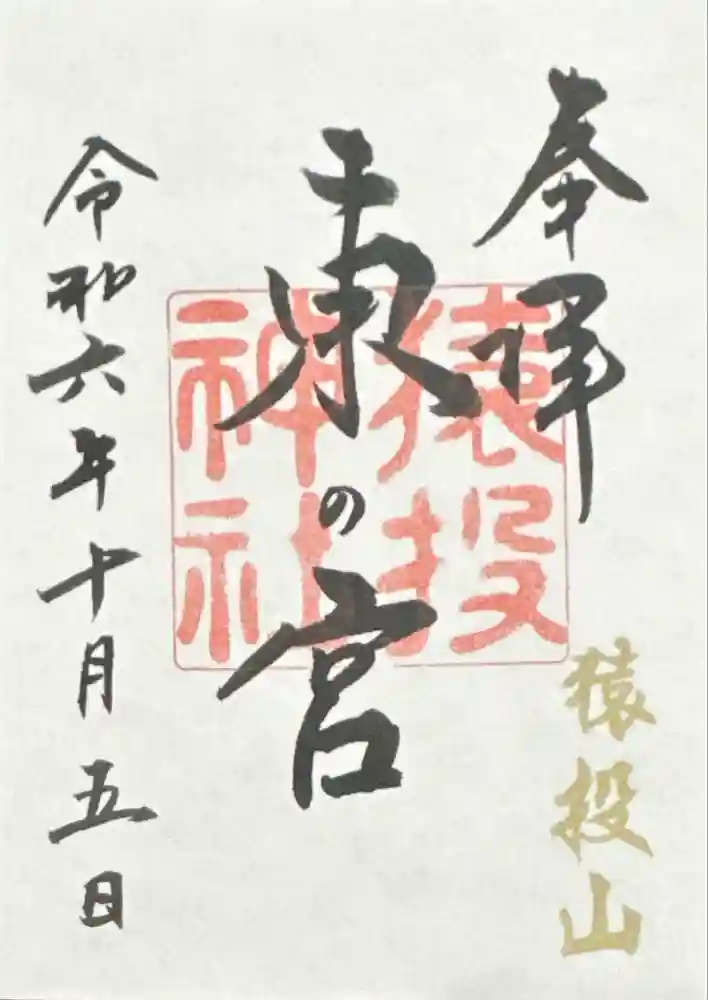 奉拝
猿投山
東の宮
猿投神社
令和六年十月五日